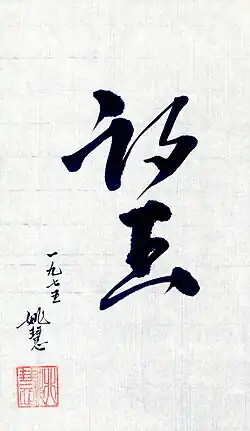 望
一九七五
姚慧